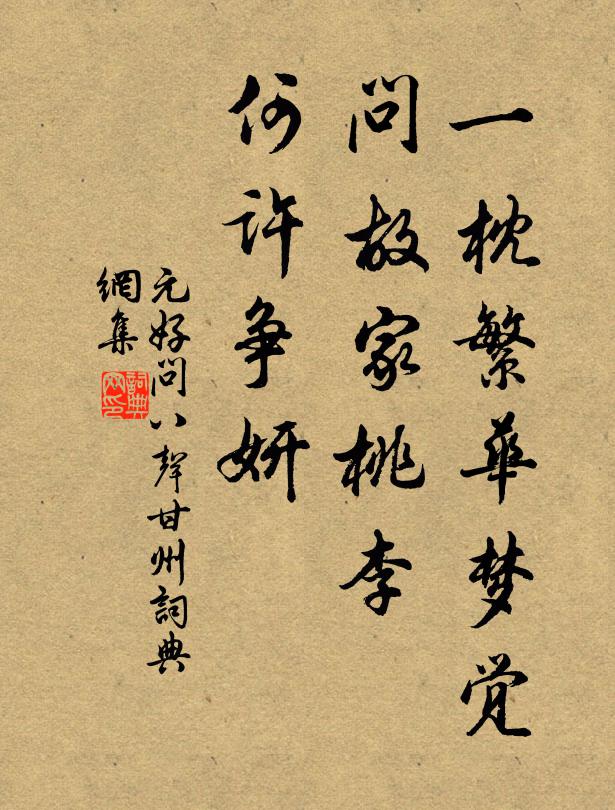 一枕繁華梦觉
问故家桃李
何许争妍
元好问八聲甘州詞典
網集
詞典
网印